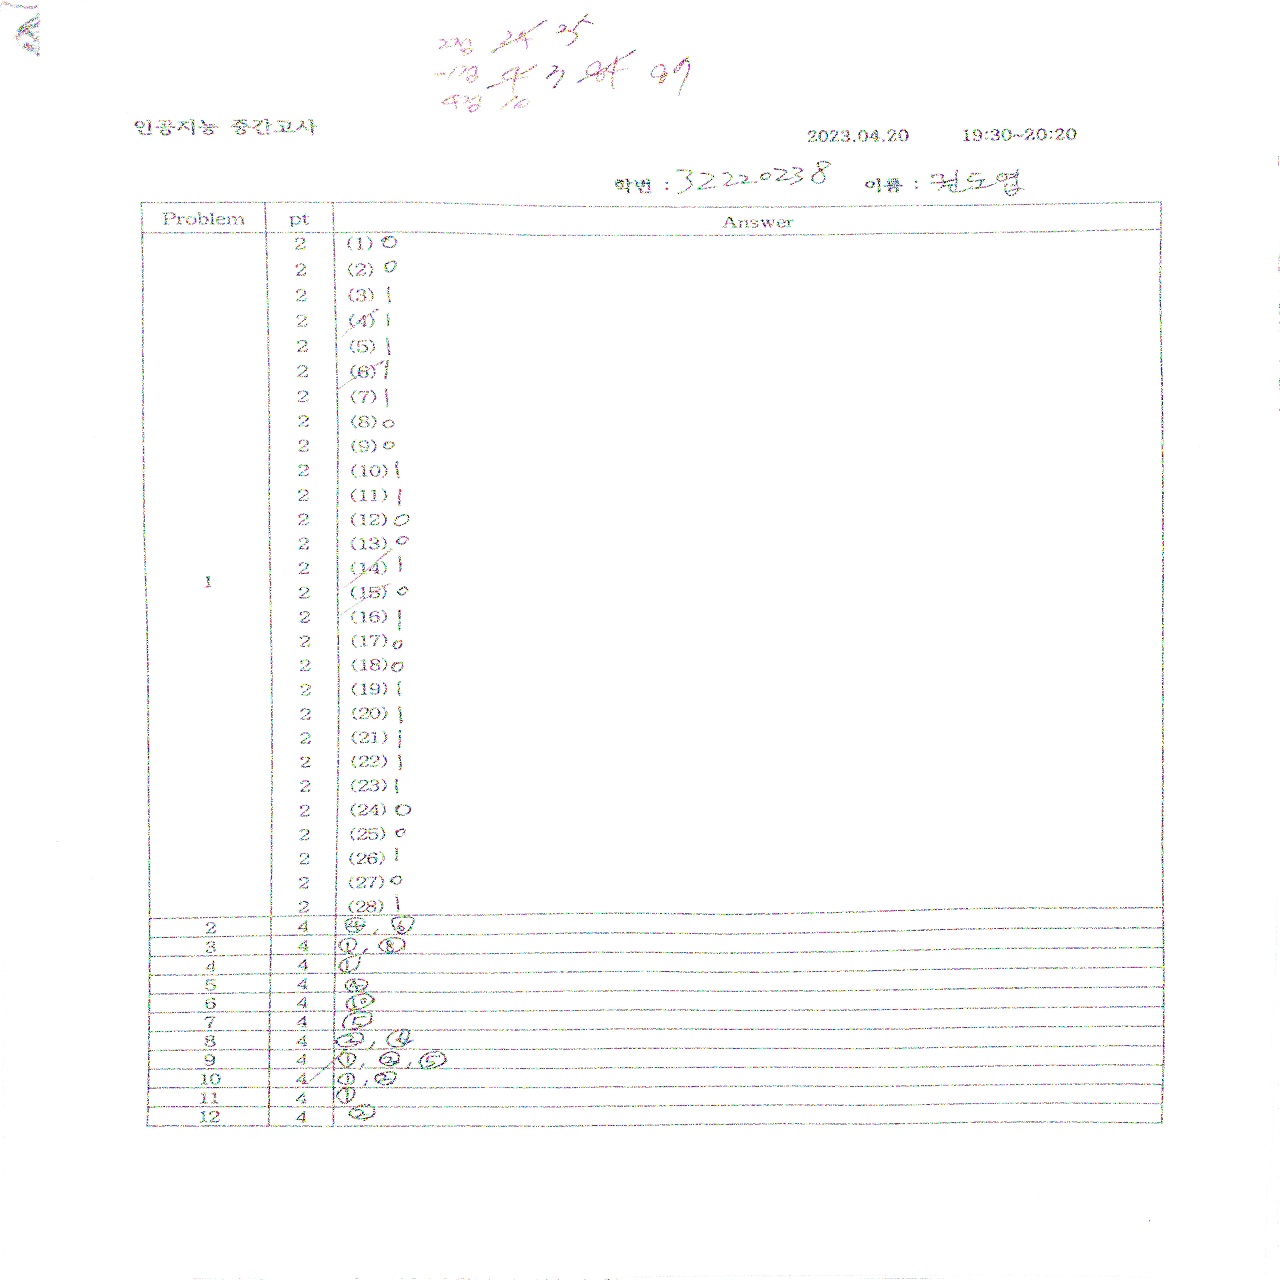 2점 24 25
-1점 4 3 84 87
4점 10
인공지능 중간고사
2023.04.20 19:30~20:20
학번 : 32220238 이름 : 권도엽
Problem pt Answer
2 (1) 0
2 (2) 0
2 (3) 1
2 (4) 1
2 (5) 1
2 (6) 1
2 (7) 1
2 (8) 0
2 (9) 0
2 (10) 1
2 (11) 1
2 (12) 0
2 (13) 0
2 (14) 1
1 2 (15) 0
2 (16) 1
2 (17) 0
2 (18) 0
2 (19) 1
2 (20) 1
2 (21) 1
2 (22) 1
2 (23) 1
2 (24) 0
2 (25) 0
2 (26) 1
2 (27) 0
2 (28) 1
2 4 ④, ⑥
3 4 ①, ⑧
4 4 ①
5 4 ④
6 4 ⑩
7 4
8 4 ②, ④
9 4 ①, ②, ⑤
10 4 ①, ②
11 4 ①
12 4 ②